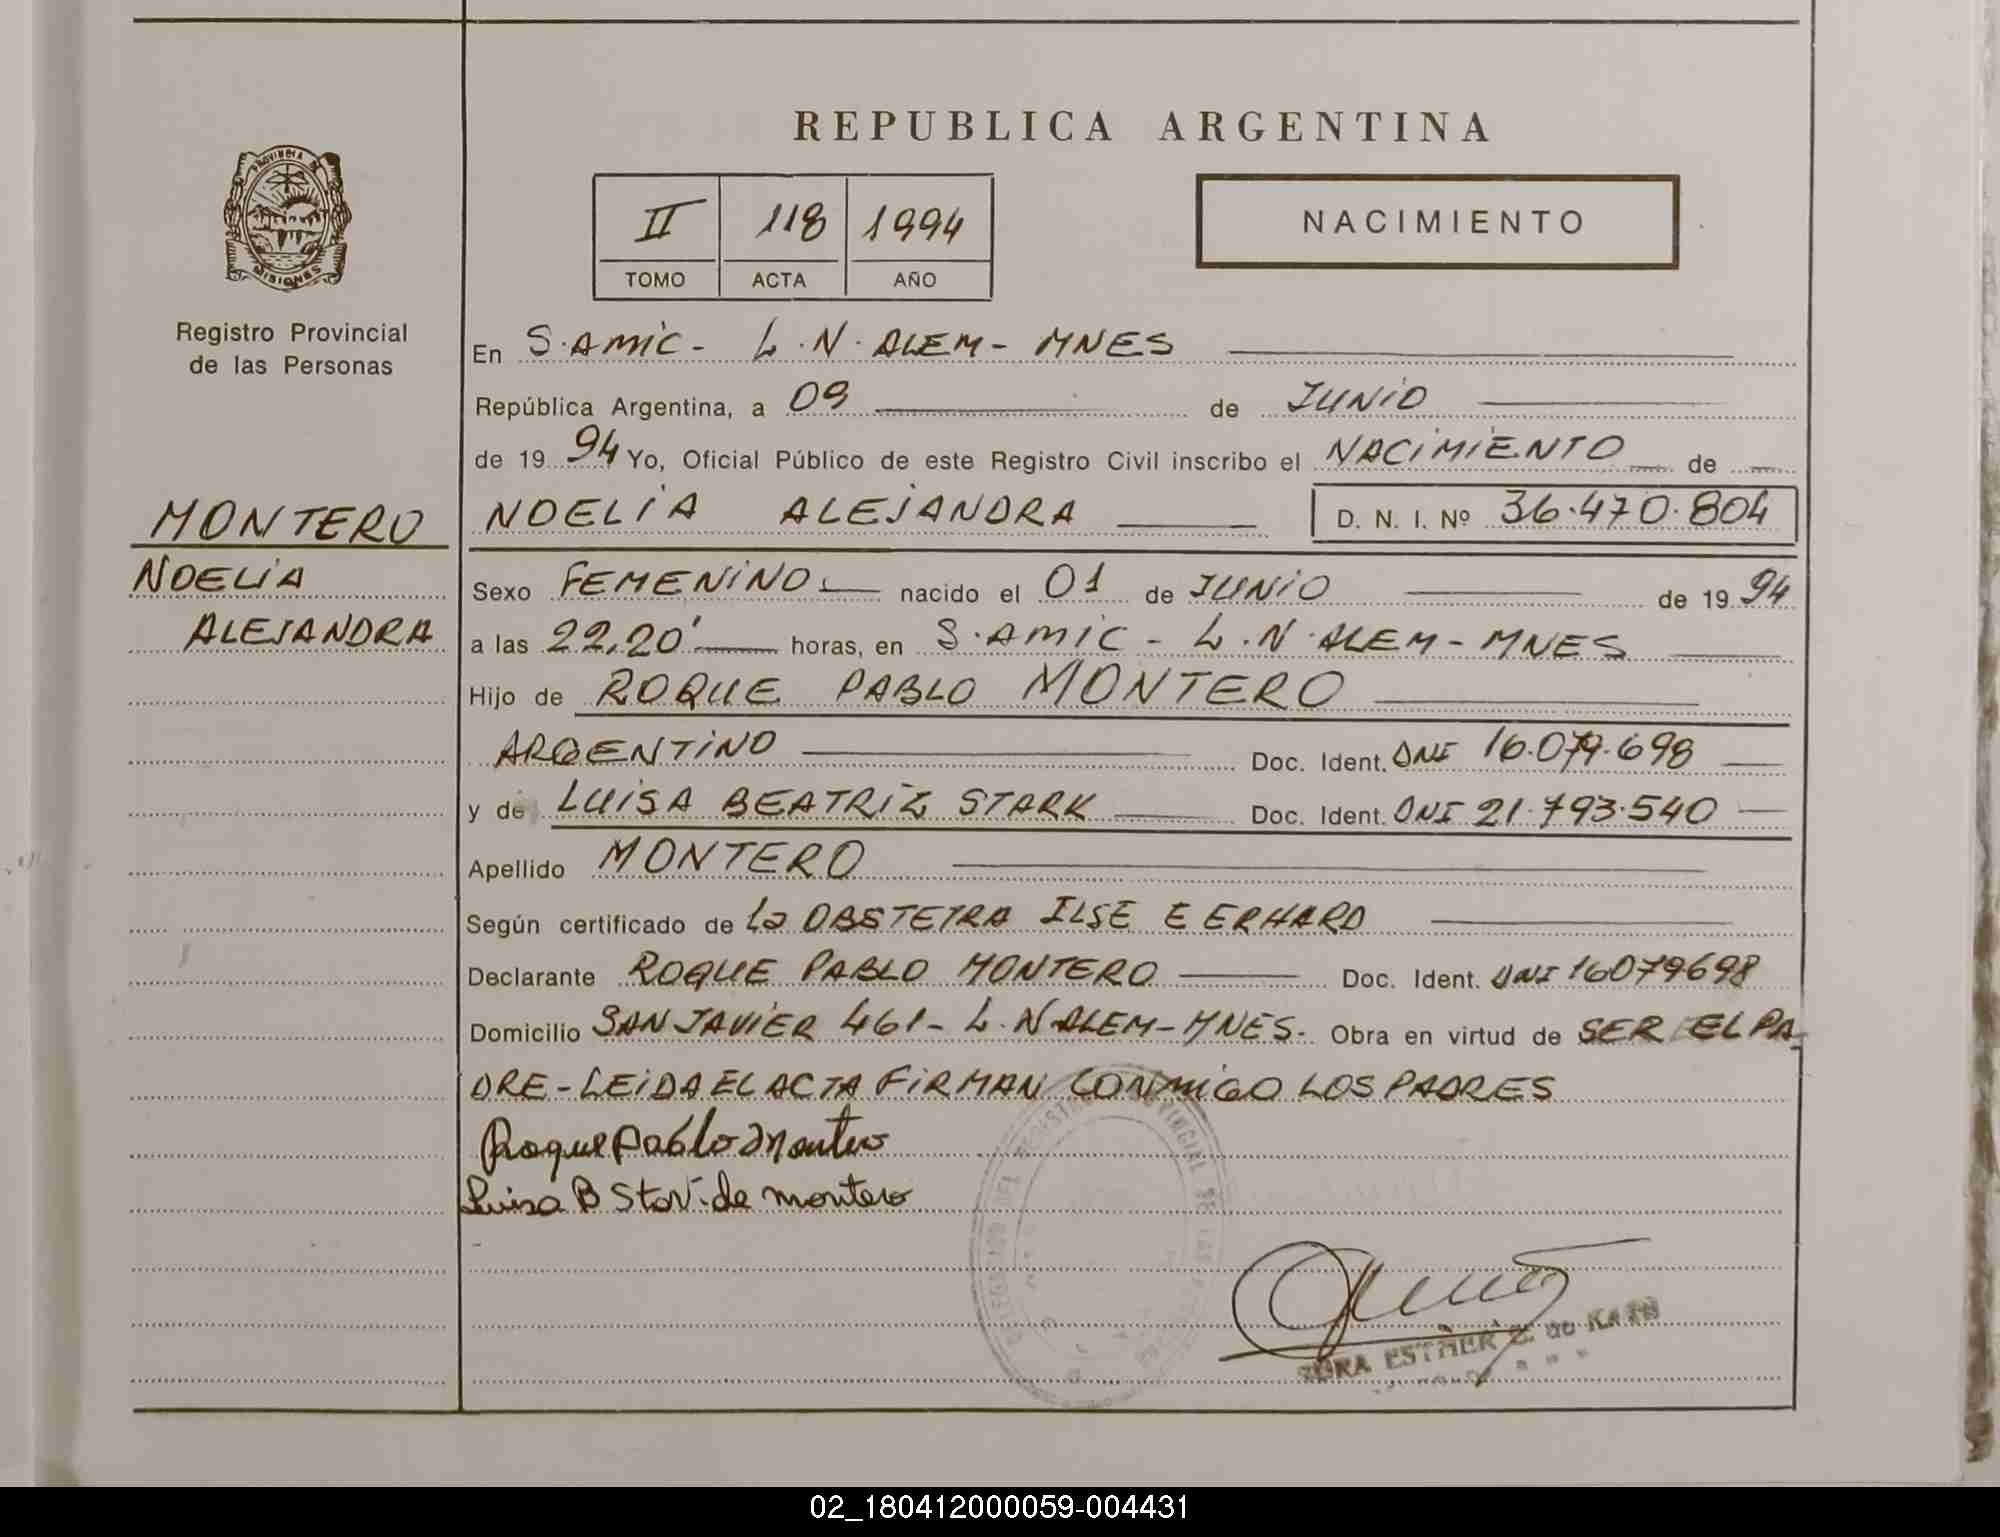 REPUBLICA ARGENTINA
PROVINCIA DE MISIONES
II 118 1994
TOMO ACTA AÑO
NACIMIENTO
Registro Provincial
de las Personas
MONTERO
NOELIA
ALEJANDRA
En S. AMIC - L. N. ALEM - MNES
República Argentina, a 09 de JUNIO
de 19 94 Yo, Oficial Público de este Registro Civil inscribo el NACIMIENTO de
NOELIA ALEJANDRA D. N. I. Nº 36.470.804
Sexo FEMENINO nacido el 01 de JUNIO de 19 94
a las 22,20' horas, en S. AMIC - L. N. ALEM - MNES
Hijo de ROQUE PABLO MONTERO
ARGENTINO Doc. Ident. DNI 16.079.698
y de LUISA BEATRIZ STARK Doc. Ident. DNI 21.793.540
Apellido MONTERO
Según certificado de la OBSTETRA ILSE E ERHARD
Declarante ROQUE PABLO MONTERO Doc. Ident. DNI 16079698
Domicilio SAN JAVIER 461 - L. N ALEM - MNES. Obra en virtud de SER EL PA-
DRE - LEIDA EL ACTA FIRMAN CONMIGO LOS PADRES
Roque Pablo Montero
Luisa B de montero
ESTHER Z. de
02_180412000059-004431